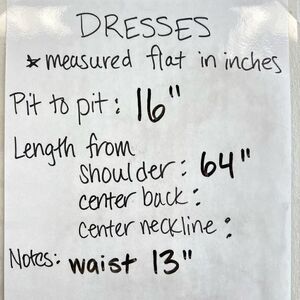 DRESSES
*measured flat in inches
Pit to pit: 16"
Length from
shoulder: 64"
center back:
center neckline:
Notes: waist 13"